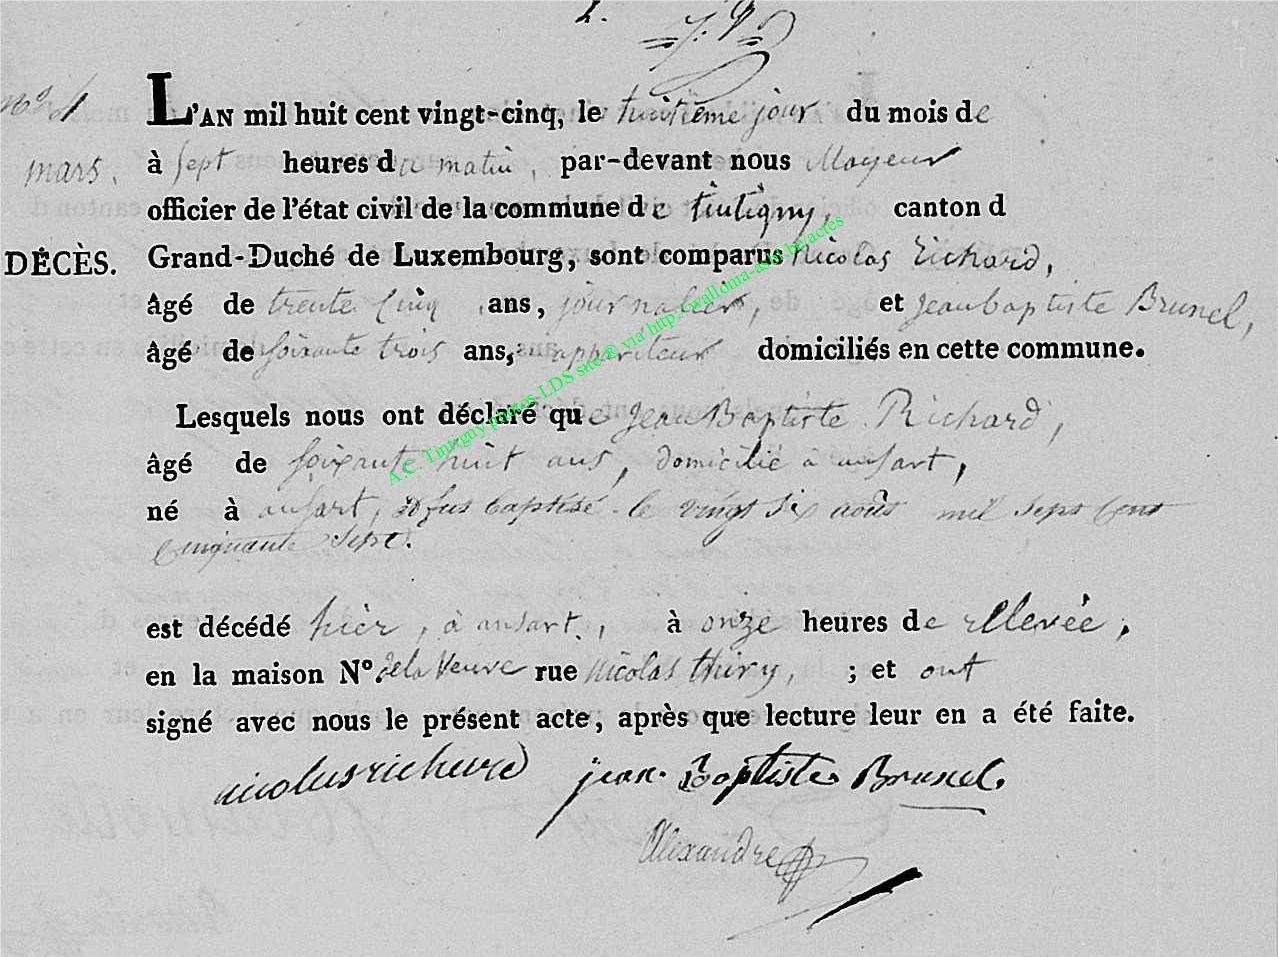 2.
N° 4
L'AN mil huit cent vingt-cinq, le huitieme jour du mois de
mars. à sept heures du matin, par-devant nous Mayeur
officier de l'état civil de la commune de tintigny, canton d
DÉCÈS. Grand-Duché de Luxembourg, sont comparus Nicolas Richard,
âgé de trente cinq ans, journalier, et jeanbaptiste Brunel,
âgé de soixante trois ans, appariteur domiciliés en cette commune.
Lesquels nous ont déclaré que Jean Baptiste Richard,
âgé de soixante huit ans, domicilié à ansart,
né à ansart, & fut baptisé le vingt six août mil sept cent
cinquante sept.
est décédé hier, à ansart, à onze heures de rellevée,
en la maison N°. de la veuve rue nicolas thiry, ; et ont
signé avec nous le présent acte, après que lecture leur en a été faite.
nicolas richard jean Baptiste Brunel
Alexandre
A.C. Tintigny photos-LDS site ® via http://wallonia-asbl.be/acres